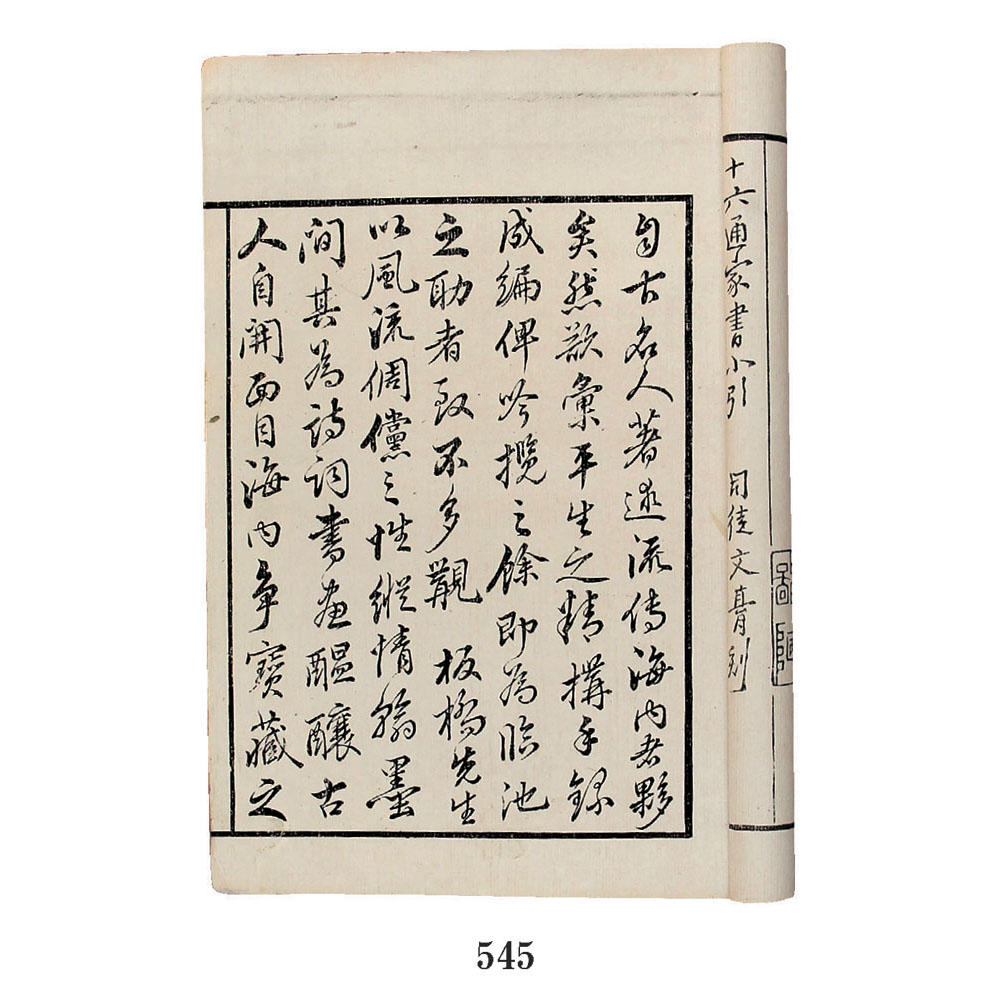 自古名人著述流傳海内者夥
矣然欲彙平生之精搆手録
成編俾吟攬之餘即為臨池
之助者致不多覯 板橋先生
以風流倜儻之性縱情翰墨
間其為詩詞書畫醞釀古
人自開面目海内争寳藏之
十六通家書小引
司徒文膏刻
545